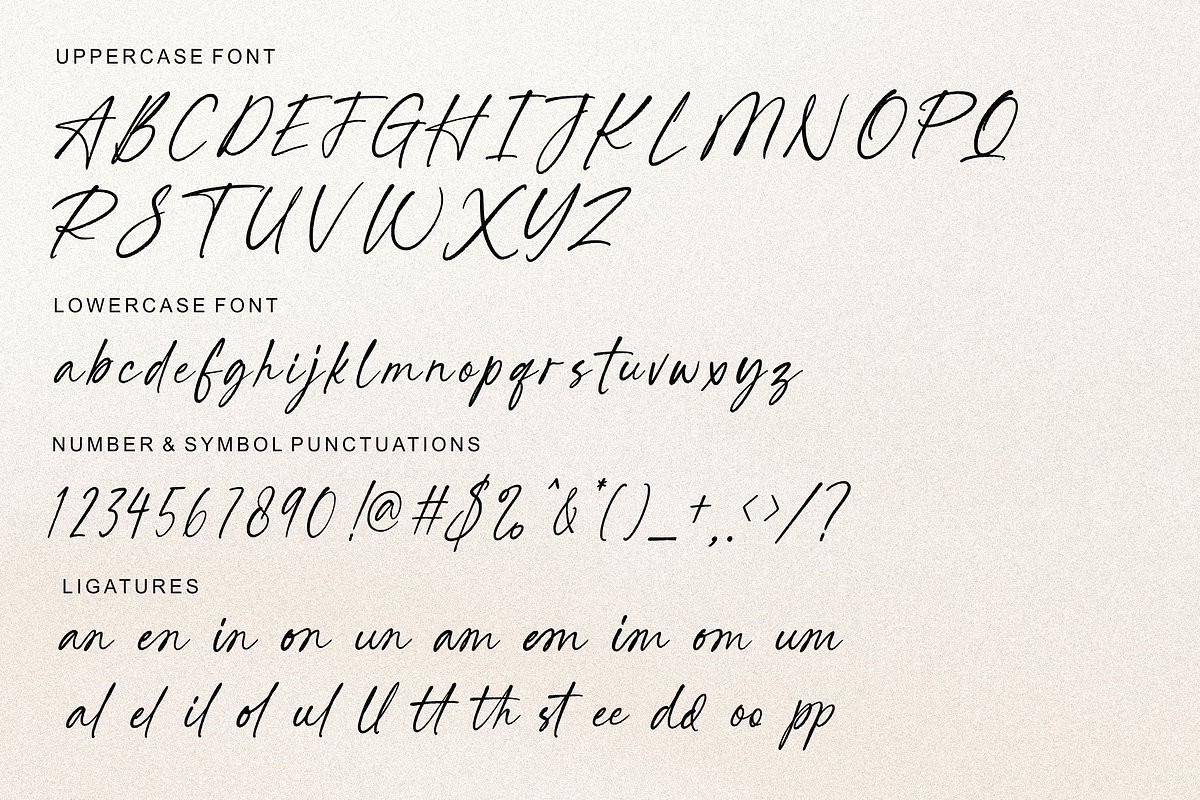 UPPERCASE FONT
ABCDEFGHIJKLMNOPQ
RSTUVWXYZ
LOWERCASE FONT
abcdefghijklmnopqrstuvwxyz
NUMBER & SYMBOL PUNCTUATIONS
1234567890!@#$%^&*()_+,.<>/?
LIGATURES
an en in on un am em im om um
al el il ol ul ll tt th st ee dd oo pp